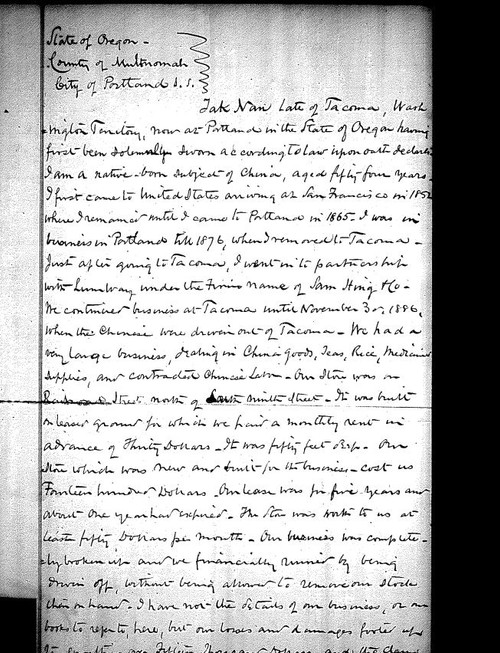 State of Oregon -
County of Multnomah
City of Portland S.S.
Tak Nan Late of Tacoma, Wash
-ington Territory, now at Portland in the State of Oregon having
first been solemnly sworn according to law upon oath declares
I am a native-born subject of China, aged fifty four years.
I first came to United States arriving at San Francisco in 1852
where I remained until I came to Portland in 1865. I was in
business in Portland till 1876, when I removed to Tacoma -
Just after going to Tacoma, I went into partnership
with Lum Way under the Firm name of Sam Hing Ho -
We continued business at Tacoma until November 3d, 1886,
when the Chinese were driven out of Tacoma - We had a
very large business, dealing in China goods, Teas, Rice, Medicines
supplies, and contracted Chinese Labor - Our Store was on
Railroad Street north of South ninth Street - It was built
on leased ground for which we paid a monthly rent in
advance of Thirty Dollars - It was fifty feet deep - Our
store which was new and built for the business - cost us
Fourteen hundred Dollars - Our lease was for five years and
about one year had expired - The Store was worth to us at
least fifty Dollars per month - Our business was complete-
-ly broken up and we financially ruined by being
driven off, without being allowed to remove our stock
then on hand - I have not the details of our business, or our
books to refer to, here, but our losses and damages footed up
Fifteen Thousand Dollars, and the